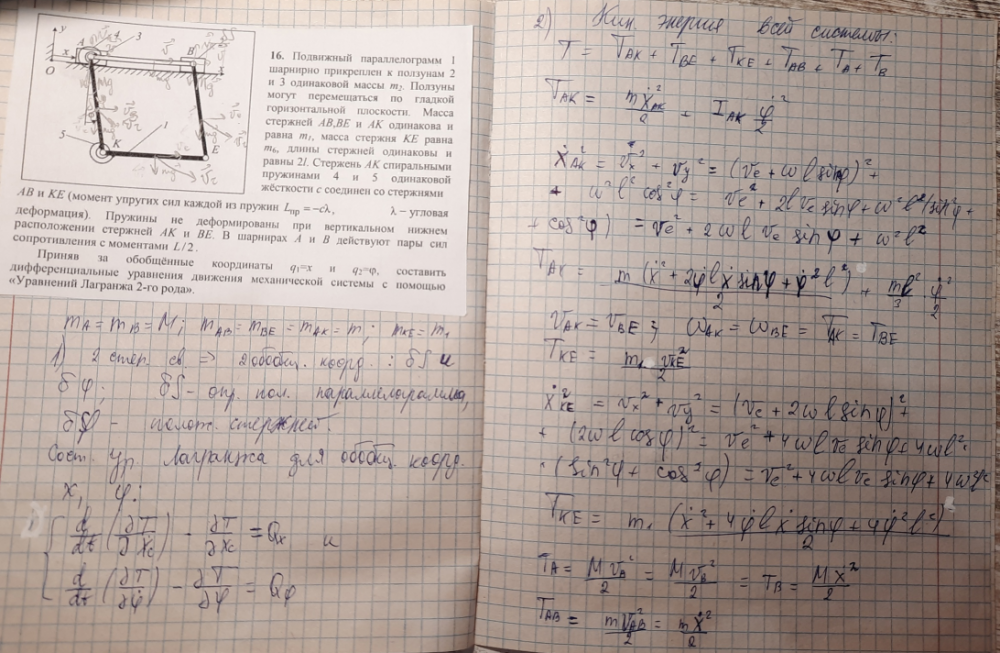 16. Подвижный параллелограмм 1
шарнирно прикреплен к ползунам 2
и 3 одинаковой массы m₂. Ползуны
могут перемещаться по гладкой
горизонтальной плоскости. Масса
стержней AB,BE и AK одинакова и
равна m₁, масса стержня KE равна
m₆, длины стержней одинаковы и
равны 2l. Стержень AK спиральными
пружинами 4 и 5 одинаковой
жёсткости c соединен со стержнями
AB и KE (момент упругих сил каждой из пружин Lпр = −cλ, λ – угловая
деформация). Пружины не деформированы при вертикальном нижнем
расположении стержней AK и BE. В шарнирах A и B действуют пары сил
сопротивления с моментами L/2 .
Приняв за обобщённые координаты q₁=x и q₂=φ, составить
дифференциальные уравнения движения механической системы с помощью
«Уравнений Лагранжа 2-го рода».
y
4
3
A
B
x
O
5
1
K
E
m_A = m_B = M; m_AB = m_BE = m_AK = m; m_KE = m₁
1) 2 степ. св => 2 обобщ. коорд. : δS и
δφ; δS - опр. пол. параллелограмма,
δφ - полож. стержней.
Сост. ур. Лагранжа для обобщ. коорд.
x, φ:
d/dt (∂T/∂ẋ) - ∂T/∂x = Qx и
d/dt (∂T/∂φ̇) - ∂T/∂φ = Qφ
2) Кин. энергия всей системы:
T = T_AK + T_BE + T_KE + T_AB + T_A + T_B
T_AK = mẋ²_AK/2 + I_AK φ̇²/2
ẋ²_AK = v_x² + v_y² = (v_e + ωl sinφ)² +
+ ω²l² cos²φ = v_e² + 2l v_e sinφ + ω²l²(sin²φ +
+ cos²φ) = v_e² + 2ωl v_e sinφ + ω²l²
T_AK = m(ẋ² + 2φ̇lẋ sinφ + φ̇²l²)/2 + ml²/3 φ̇²/2
v_AK = v_BE; ω_AK = ω_BE = T_AK = T_BE
T_KE = m₁ v_KE²/2
ẋ²_KE = v_x² + v_y² = (v_e + 2ωl sinφ)² +
+ (2ωl cosφ)² = v_e² + 4ωl v_e sinφ + 4ωl² ·
· (sin²φ + cos²φ) = v_e² + 4ωl v_e sinφ + 4ω²l²
T_KE = m₁ (ẋ² + 4φ̇lẋ sinφ + 4φ̇²l²)/2
T_A = M v_A²/2 = M v_B²/2 = T_B = Mẋ²/2
T_AB = m v_AB²/2 = mẋ²/2